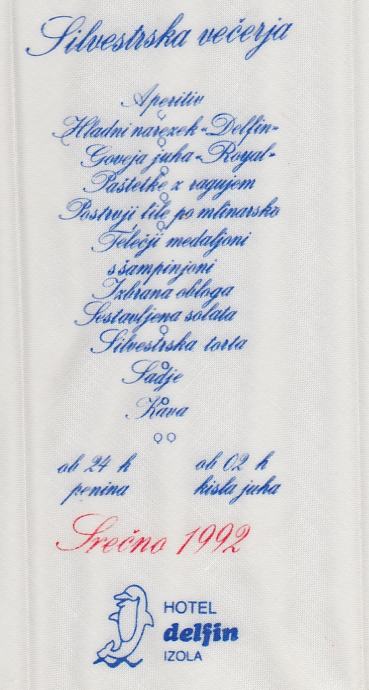 Silvestrska večerja
Aperitiv
Hladni narezek «Delfin»
Goveja juha «Royal»
Paštetke z ragujem
Postrvji file po mlinarsko
Telečji medaljoni
s šampinjoni
Izbrana obloga
Sestavljena solata
Silvestrska torta
Sadje
Kava
ob 24 h ob 02 h
penina kisla juha
Srečno 1992
HOTEL
delfin
IZOLA